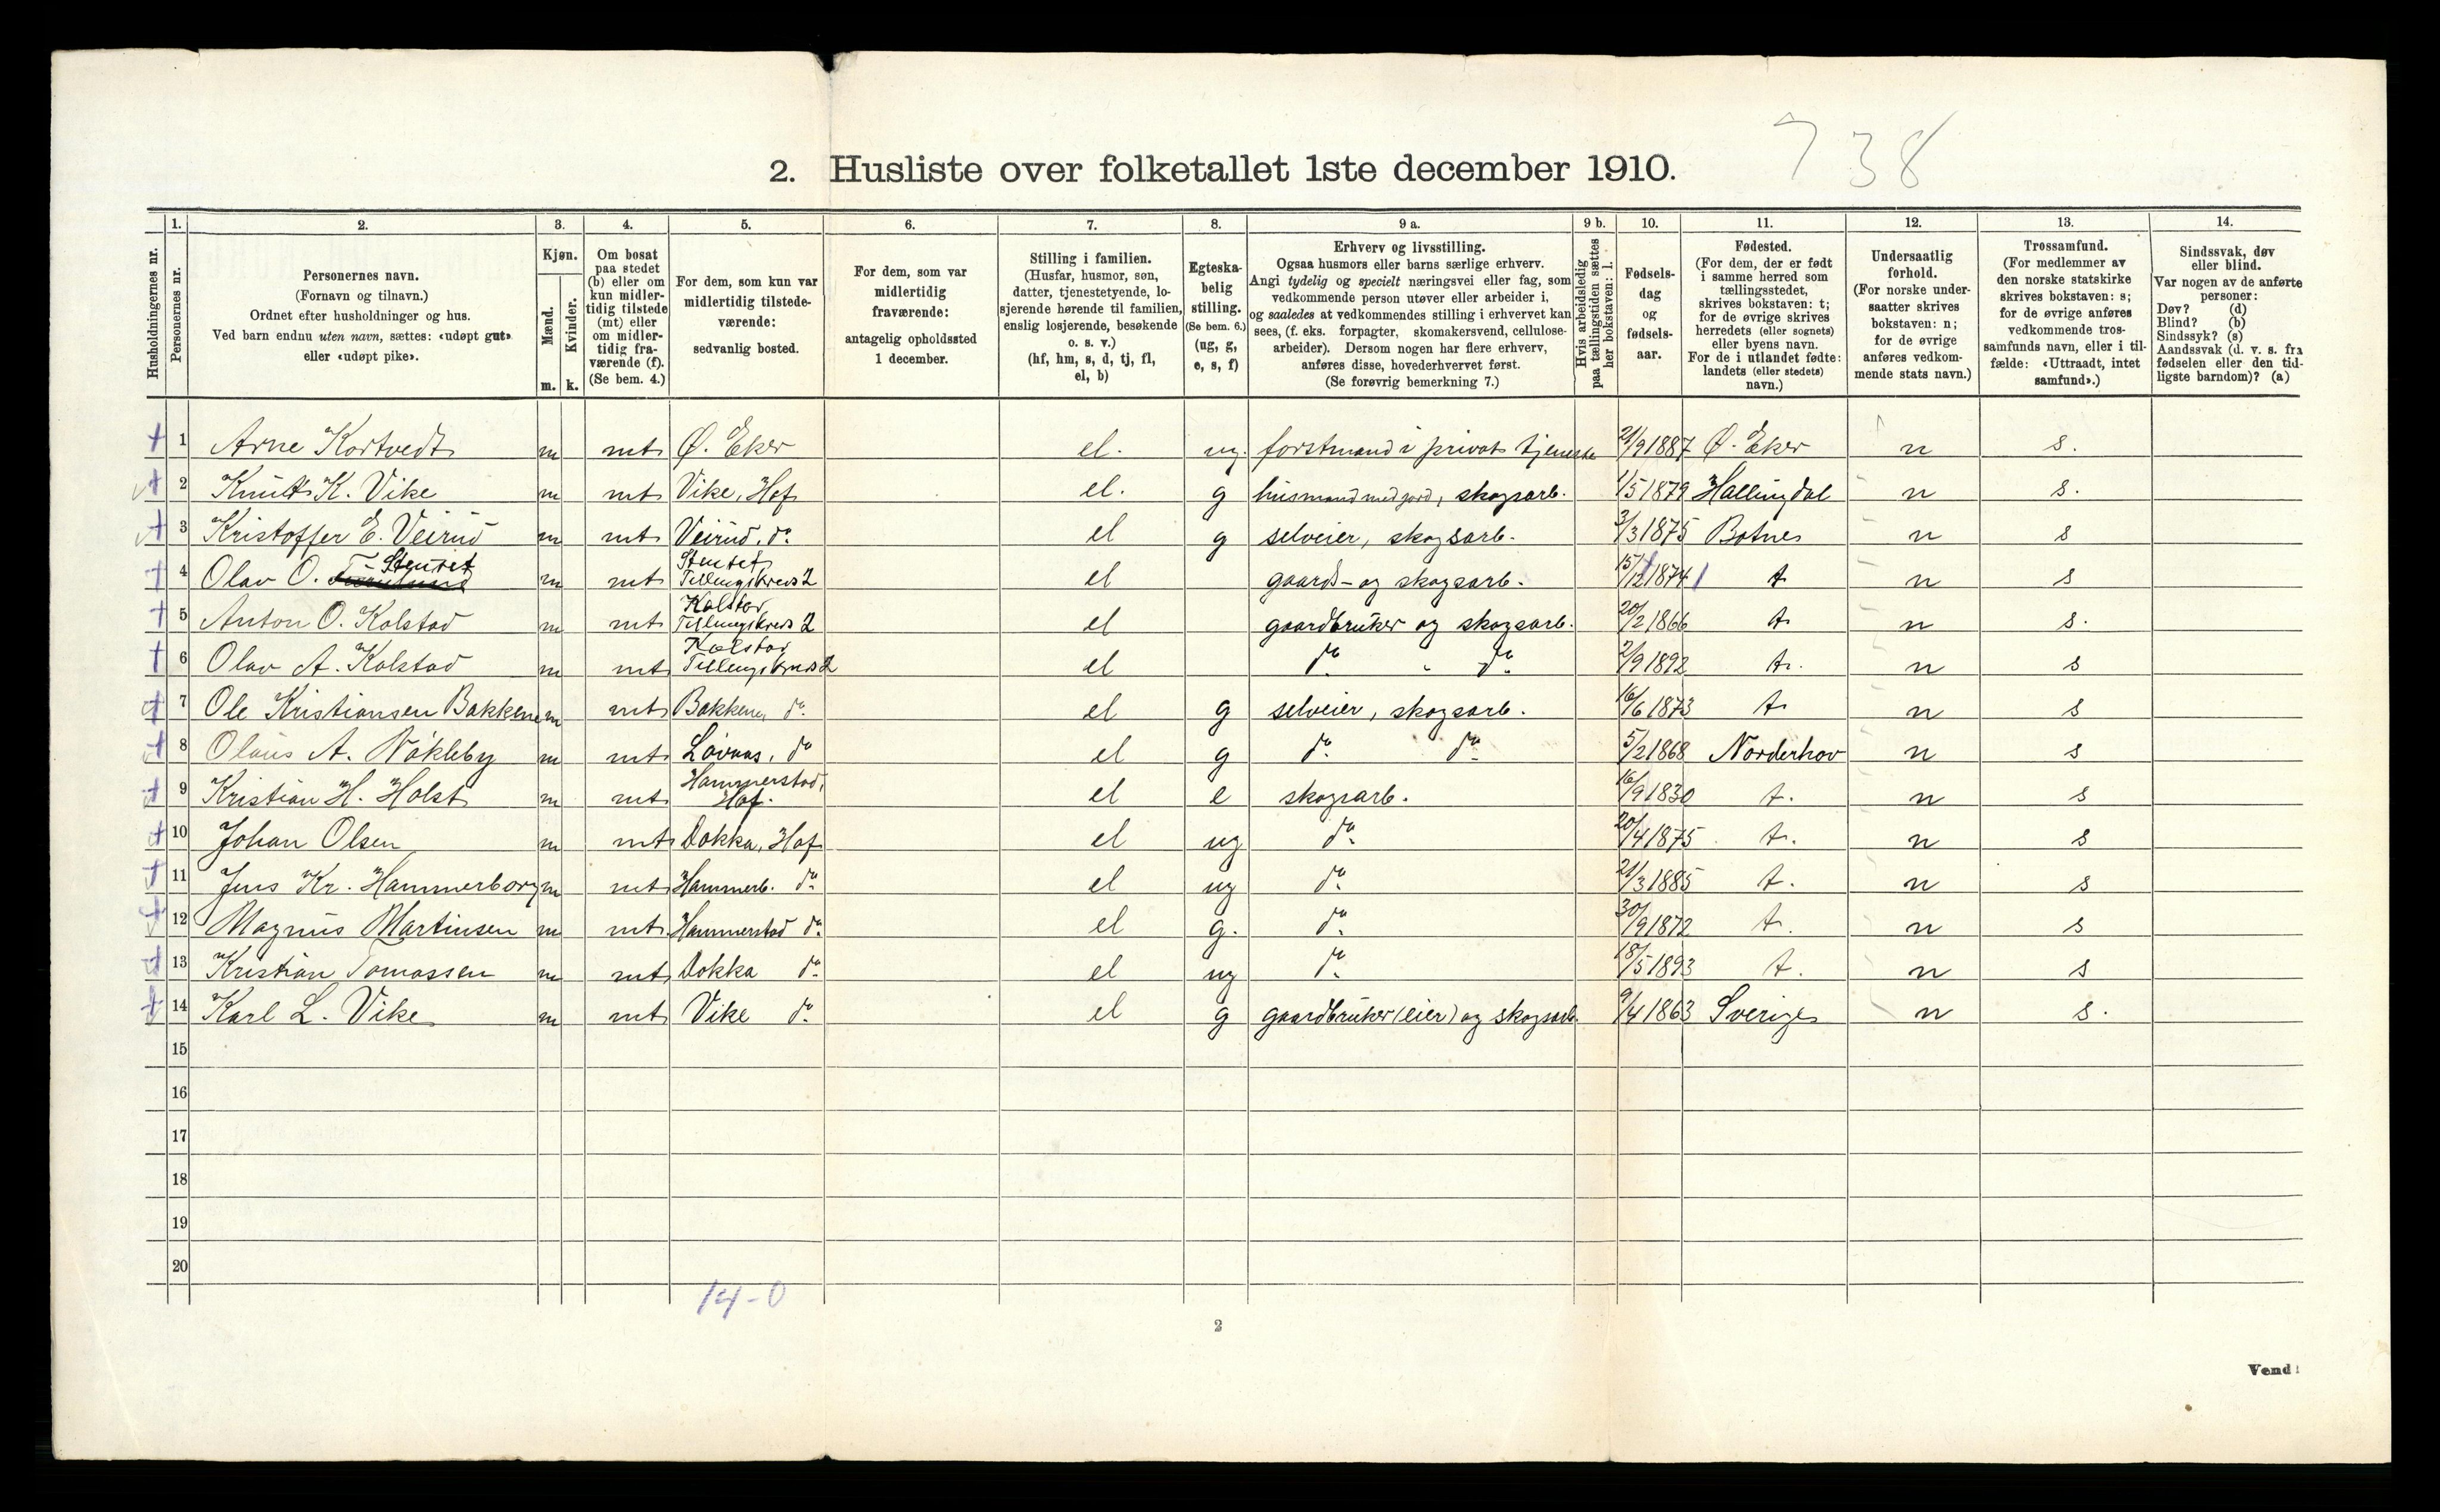 738
2. Husliste over folketallet 1ste december 1910.
Husholdningernes nr.
1. Personernes nr.
2. Personernes navn.
(Fornavn og tilnavn.)
Ordnet efter husholdninger og hus.
Ved barn endnu uten navn, sættes: «udøpt gut»
eller «udøpt pike».
3. Kjøn.
Mænd. m.
Kvinder. k.
4. Om bosat
paa stedet
(b) eller om
kun midler-
tidig tilstede
(mt) eller
om midler-
tidig fra-
værende (f).
(Se bem. 4.)
5. For dem, som kun var
midlertidig tilstede-
værende:
sedvanlig bosted.
6. For dem, som var
midlertidig
fraværende:
antagelig opholdssted
1 december.
7. Stilling i familien.
(Husfar, husmor, søn,
datter, tjenestetyende, lo-
sjerende hørende til familien,
enslig losjerende, besøkende
o. s. v.)
(hf, hm, s, d, tj, fl,
el, b)
8. Egteska-
belig
stilling.
(Se bem. 6.)
(ug, g,
e, s, f)
9 a. Erhverv og livsstilling.
Ogsaa husmors eller barns særlige erhverv.
Angi tydelig og specielt næringsvei eller fag, som
vedkommende person utøver eller arbeider i,
og saaledes at vedkommendes stilling i erhvervet kan
sees, (f. eks. forpagter, skomakersvend, cellulose-
arbeider). Dersom nogen har flere erhverv,
anføres disse, hovederhvervet først.
(Se forøvrig bemerkning 7.)
9 b. Hvis arbeidsledig
paa tællingstiden sættes
her bokstaven: l.
10. Fødsels-
dag
og
fødsels-
aar.
11. Fødested.
(For dem, der er født
i samme herred som
tællingsstedet,
skrives bokstaven: t;
for de øvrige skrives
herredets (eller sognets)
eller byens navn.
For de i utlandet fødte:
landets (eller stedets)
navn.)
12. Undersaatlig
forhold.
(For norske under-
saatter skrives
bokstaven: n;
for de øvrige
anføres vedkom-
mende stats navn.)
13. Trossamfund.
(For medlemmer av
den norske statskirke
skrives bokstaven: s;
for de øvrige anføres
vedkommende tros-
samfunds navn, eller i til-
fælde: «Uttraadt, intet
samfund».)
14. Sindssvak, døv
eller blind.
Var nogen av de anførte
personer:
Døv? (d)
Blind? (b)
Sindssyk? (s)
Aandssvak (d. v. s. fra
fødselen eller den tid-
ligste barndom)? (a)
1 Arne Kortvedt m mt Ø. Eker el. ug. forstmand i privat tjeneste 21/9 1887 Ø. Eker n s.
2 Knut K. Vike m mt Vike, Hof el. g husmand med jord, skogsarb. 1/5 1879 Hallingdal n s.
3 Kristoffer E. Veirud m mt Veirud, do. el g selveier, skogsarb. 3/3 1875 Botne n s
4 Olav O. Stenset m mt Stenset Tellingskreds 2 el gaards- og skogsarb. 15/12 1874 t n s
5 Anton O. Kolstad m mt Kolstad Tellingskreds 2 el gaardbruker og skogsarb. 20/2 1866 t n s.
6 Olav A. Kolstad m mt Kolstad Tellingskreds 2 el do. " do. 2/9 1892 t. n s
7 Ole Kristiansen Bakkene m mt Bakkene, do. el g selveier, skogsarb. 16/6 1873 t n s
8 Olaus A. Nökleby m mt Lövaas, do el g do. do. 5/2 1868 Norderhov n s
9 Kristian H. Holst m mt Hammerstad, Hof. el e skogsarb. 16/9 1830 t. n s
10 Johan Olsen m mt Dokka, Hof el ug do. 20/4 1875 t. n s
11 Jens Kr. Hammerborg m mt Hammerb. do. el ug do. 21/3 1885 t. n s
12 Magnus Martinsen m mt. Hammerstad do. el g. do. 30/9 1872 t. n s
13 Kristian Tomassen m mt Dokka do. el ug do. 18/5 1893 t. n s
14 Karl L. Vike m mt Vike do. el g gaardbruker (eier) og skogsarb. 9/4 1863 Sverige n s.
15
16
17
18
19
20
14-0
2
Vend!